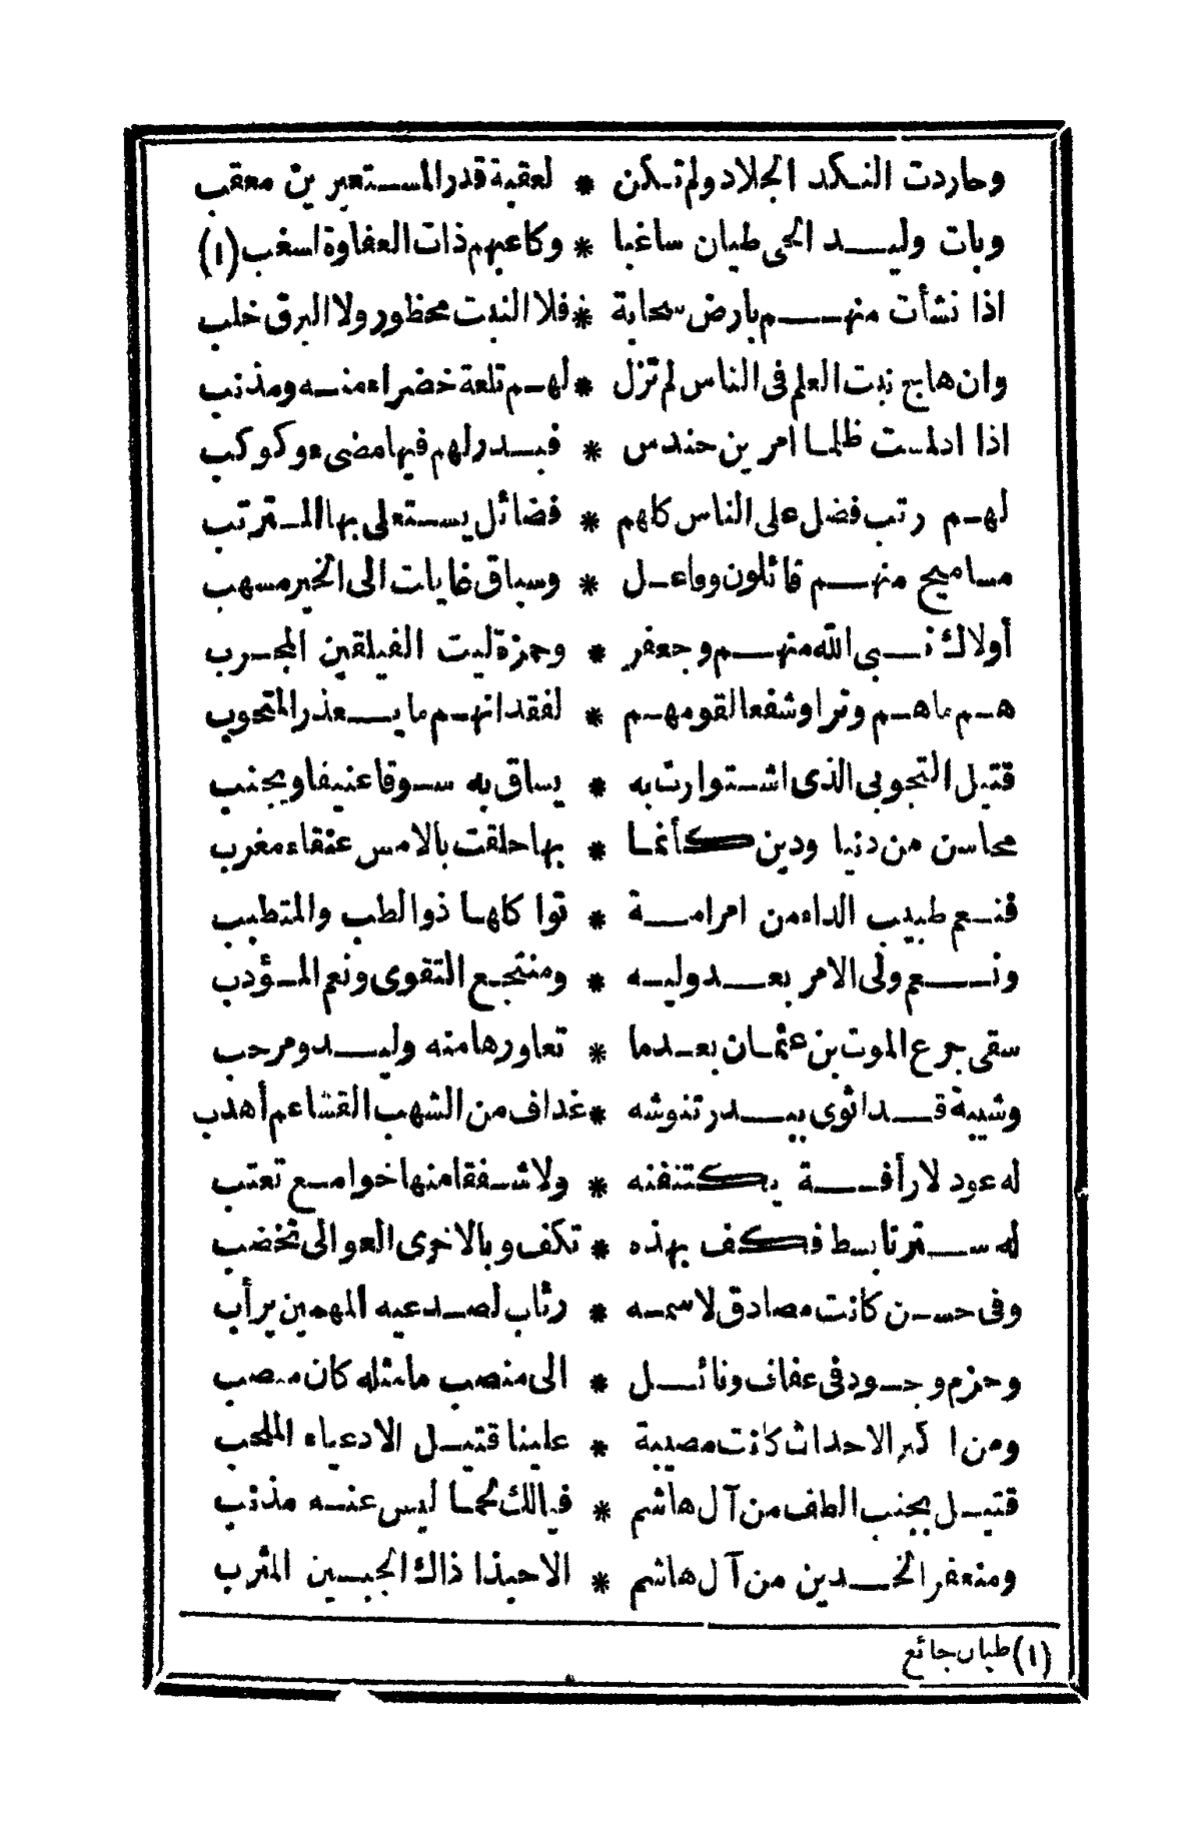 وحاردت النكد الجلاد ولم تكن * لعقبة قدر المستعيرين معقب
وبات وليد الحى طيان ساغبا * وكاعبهم ذات العفاوة اسغب (١)
اذا نشأت منهم بارض سحابة * فلا النبت محظور ولا البرق خلب
وان هاج نبت العلم فى الناس لم تزل * لهم تلعة خضراء منه ومذنب
اذا ادلمست ظلما امرين حندس * فبدر لهم فيها مضىء وكوكب
لهم رتب فضل على الناس كلهم * فضائل يستعلى بها المترتب
مساميح منهم قائلون وفاعل * وسباق غايات الى الخير مسهب
أولاك نبى الله منهم وجعفر * وحمزة ليث الفيلقين المجرب
هم ماهم وترا وشفعا لقومهم * لفقدانهم ما يعذر المتحوب
قتيل التجوبى الذى اشتوارت به * يساق به سوقا عنيفا ويجنب
محاسن من دنيا ودين كأنما * بها حلقت بالامس عنقاء مغرب
فنعم طبيب الداء من امر امة * توا كلها ذو الطب والمتطبب
ونعم ولى الامر بعد وليه * ومنتجع التقوى ونعم المؤدب
سقى جرع الموت بن عثمان بعدما * تعاورها منه وليد ومرحب
وشيبة قد اثوى ببدر تنوشه * غداف من الشهب القشاعم أهدب
له عود لا رأفة يكتنفنه * ولا شفقا منها خوامع تعتب
له سترتا بسط فكف بهذه * تكف وبالاخرى العوالى تخضب
وفى حسن كانت مصادق لاسمه * رئاب لصدعيه المهمين يرأب
وحزم وجود فى عفاف ونائل * الى منصب ما مثله كان منصب
ومن اكبر الاحداث كانت مصيبة * علينا قتيل الادعياء الملحب
قتيل بجنب الطف من آل هاشم * فيالك لحما ليس عنه مذنب
ومنعفر الخدين من آل هاشم * الا حبذا ذاك الجبين المترب
(١) طيان جائع